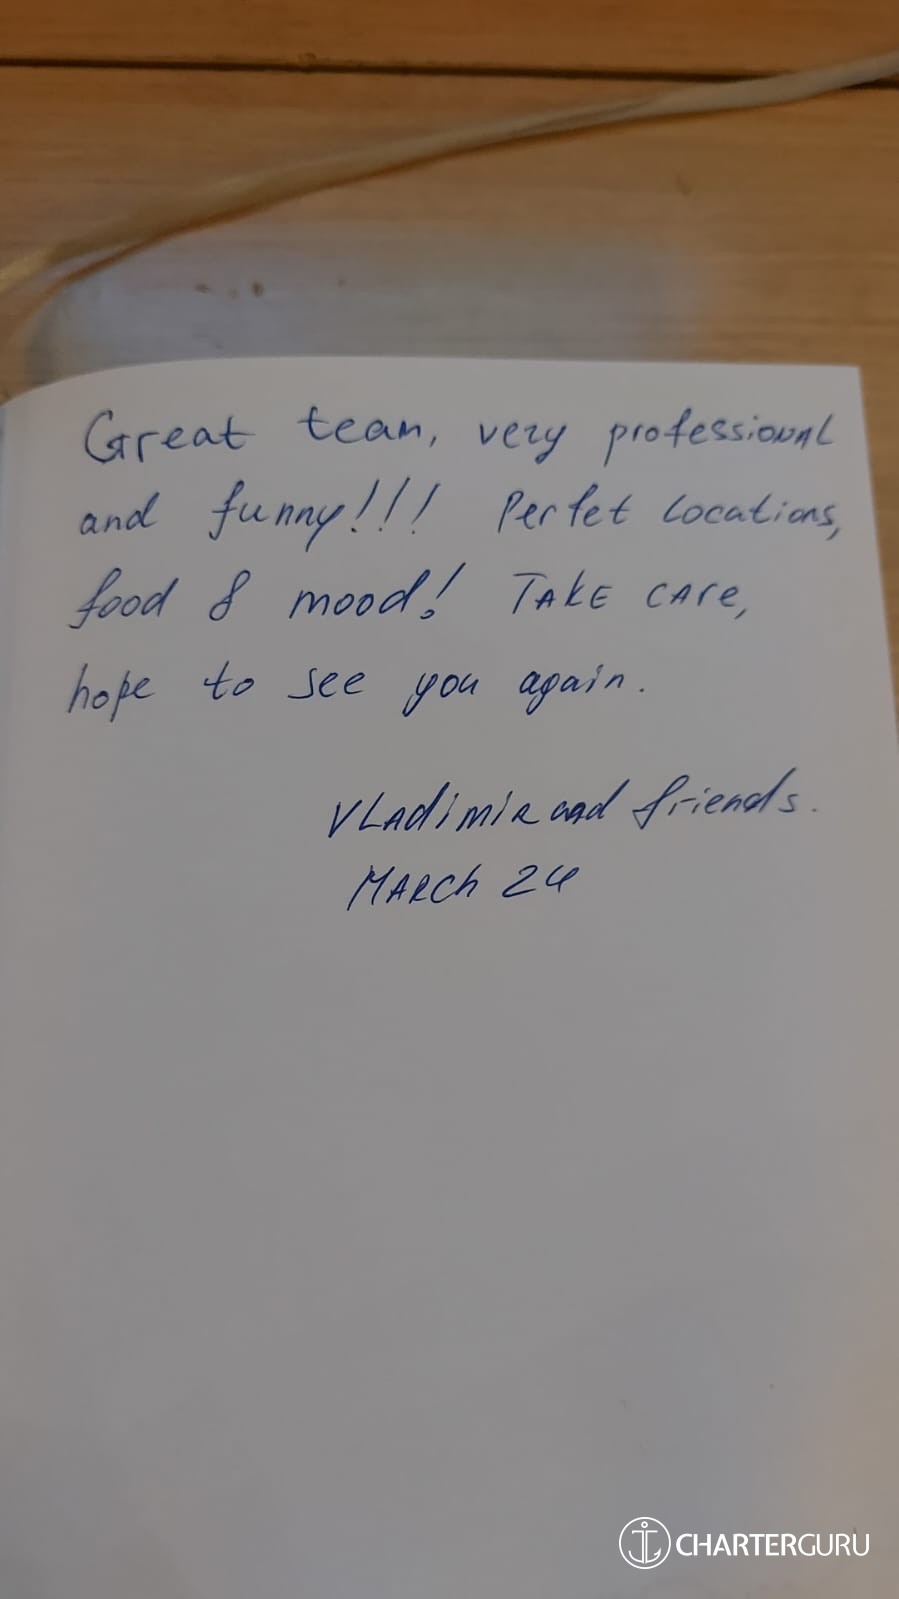 Great team, very professional
and funny!!! Perfet locations,
food & mood! Take care,
hope to see you again.
Vladimir and friends.
March 24
CHARTERGURU